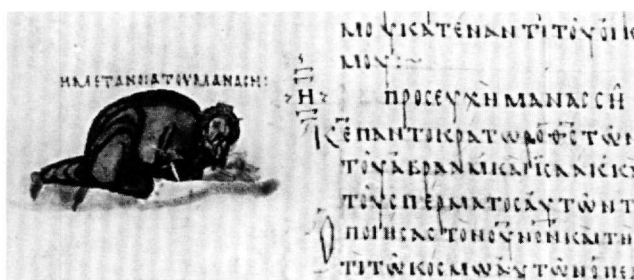 ΗΜΕΤΑΝΟΙΑΤΟΥΜΑΝΑϹΗ:
ΜΟΥ ΚΑΤΕΝΑΝΤΙ ΤΟΥ ΟΙΚ
ΜΟΥ:
Η
ΠΡΟϹΕΥΧΗ ΜΑΝΑϹϹΗ
ΚΕ ΠΑΝΤΟΚΡΑΤΩΡ Ο ΘϹ ΤΩΝ
ΤΟΥ ΑΒΡΑΑΜ ΚΑΙ ΙϹΑΑΚ Κ
ΤΟΥ ϹΠΕΡΜΑΤΟϹ ΑΥΤΩΝ Τ
Ο ΠΟΙΗϹΑϹ ΤΟΝ ΟΥΝΟΝ ΚΑΙ ΤΗ
ΤΙ ΤΩ ΚΟϹΜΩ ΑΥΤΩΝ Ο ΠΕ